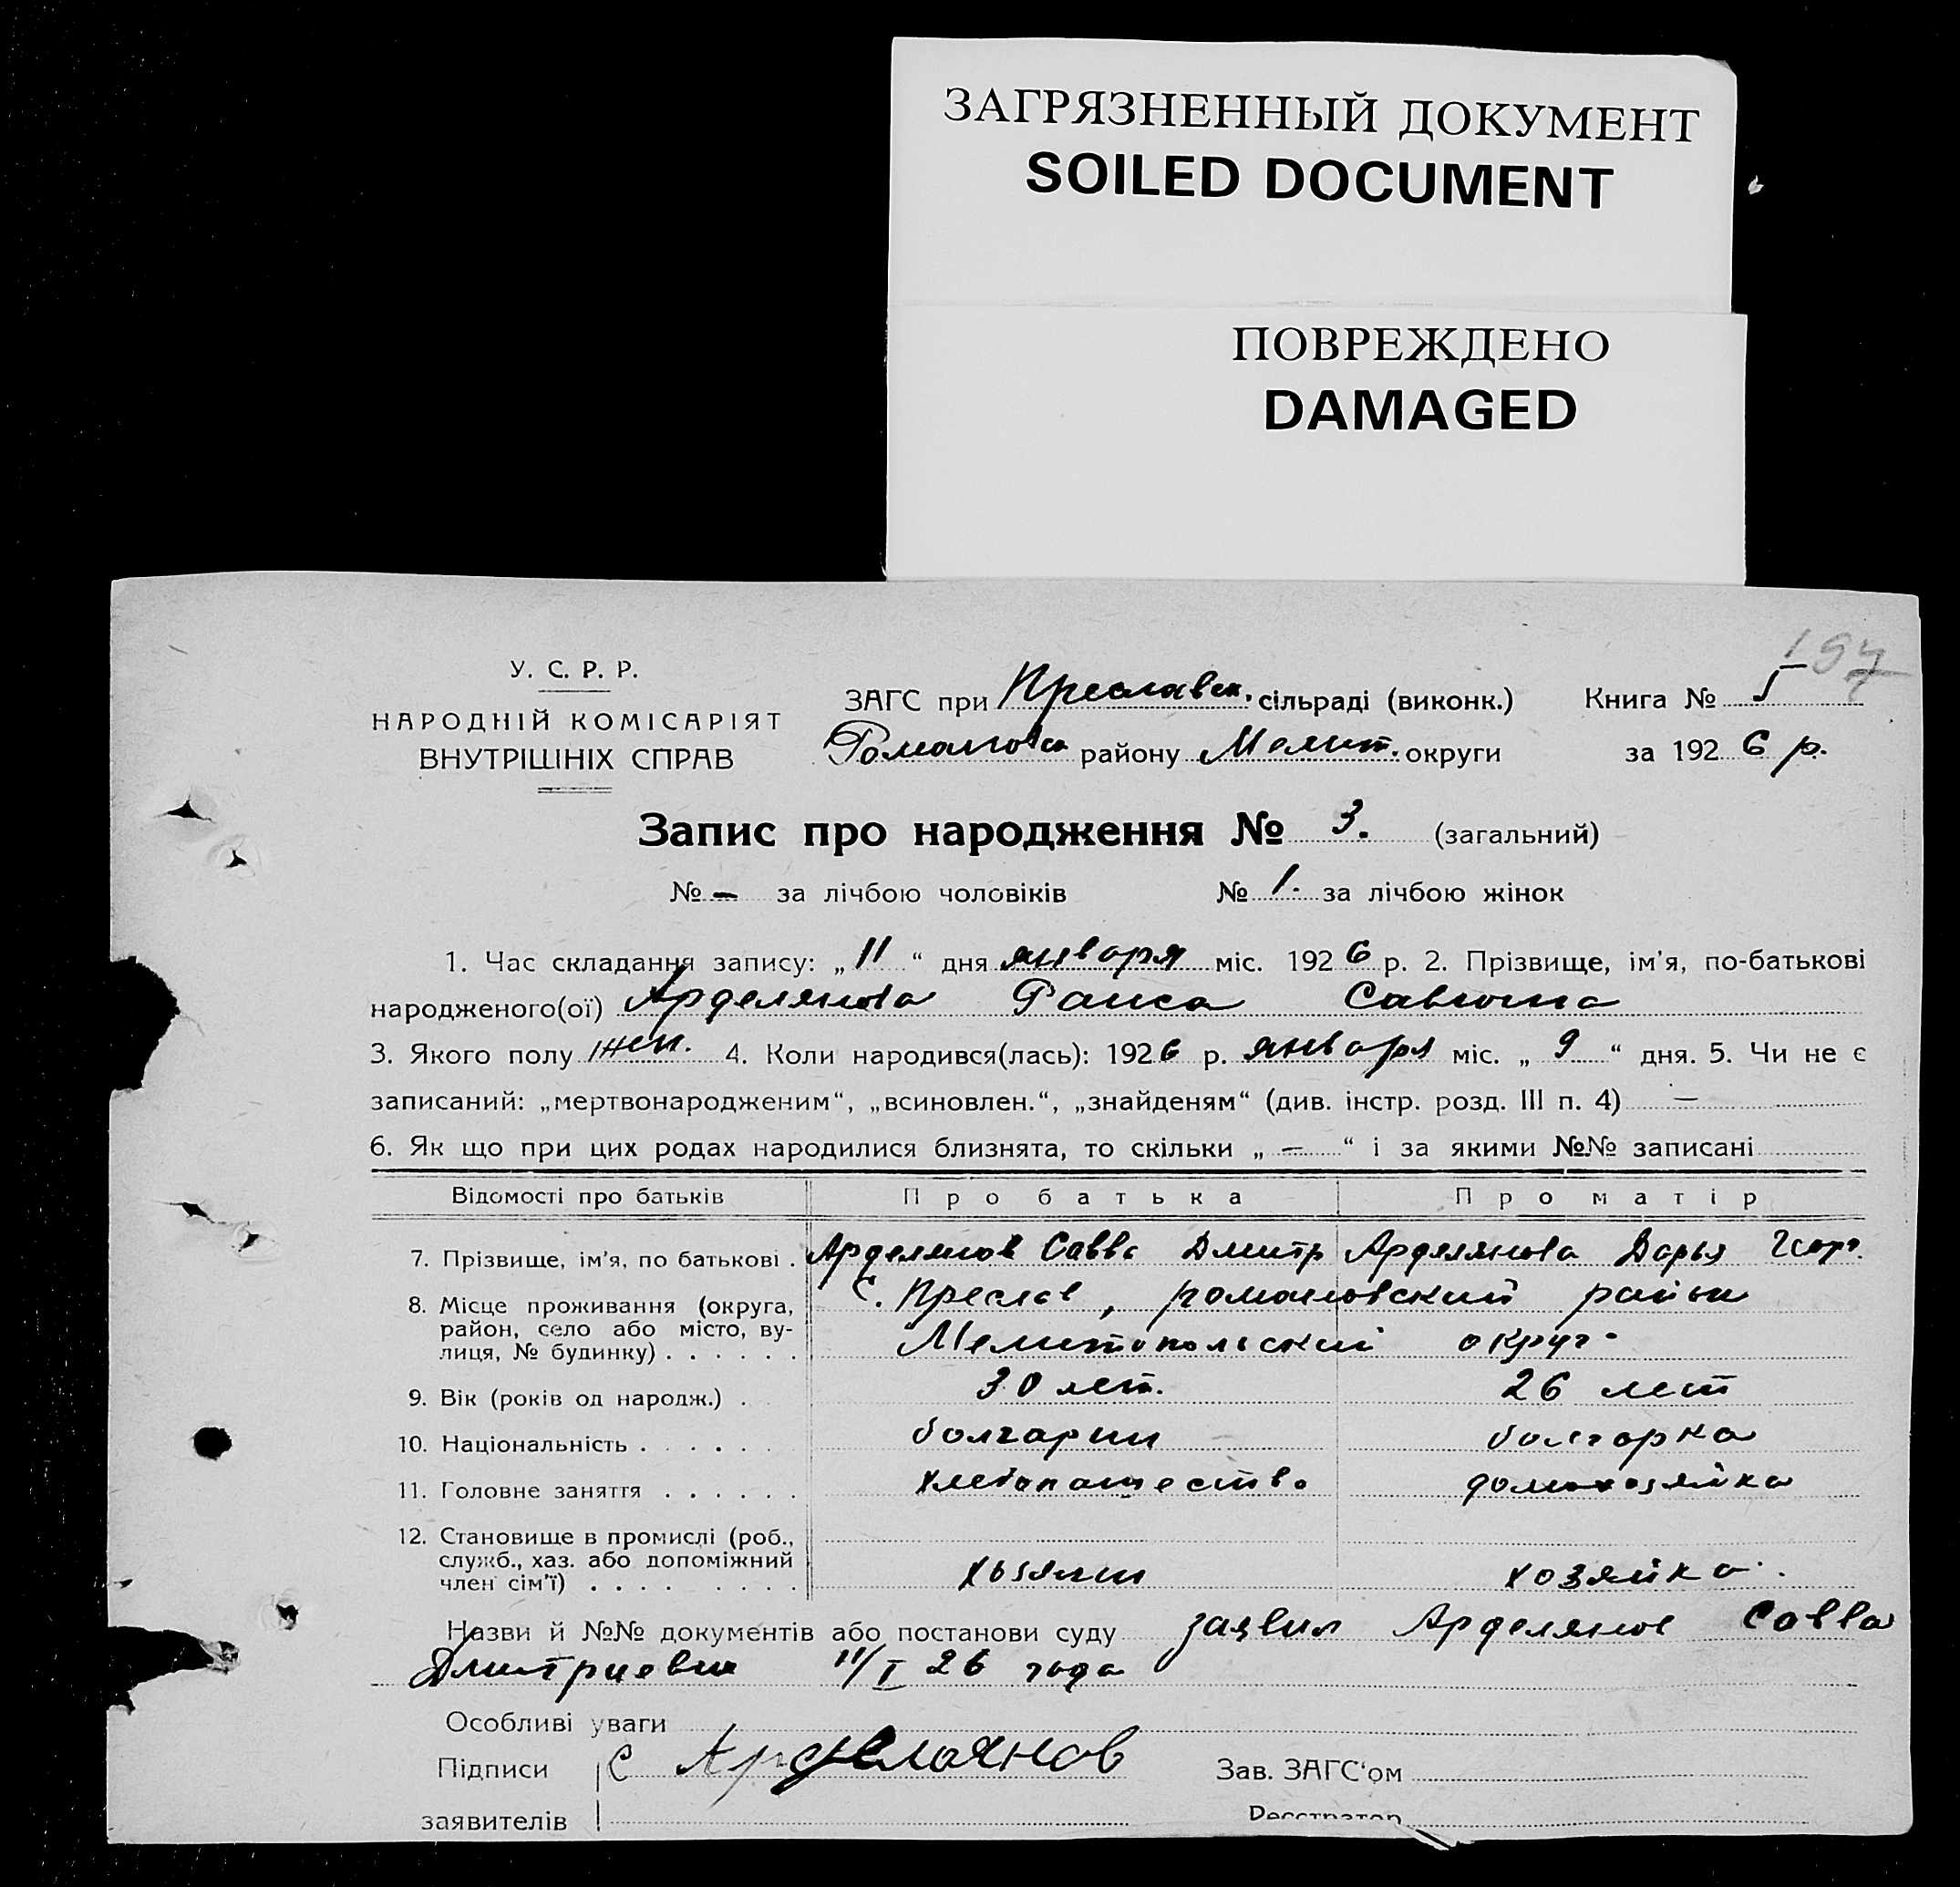 ЗАГРЯЗНЕННЫЙ ДОКУМЕНТ
SOILED DOCUMENT
ПОВРЕЖДЕНО
DAMAGED
197
У. С. Р. Р.
НАРОДНІЙ КОМІСАРІЯТ
ВНУТРІШНІХ СПРАВ
ЗАГС при Преславск. сільраді (виконк.) Книга № 5
Романовск району Мелит. округи за 1926 р.
Запис про народження № 3. (загальний)
№ – за лічбою чоловіків № 1. за лічбою жінок
1. Час складання запису: „11“ дня января міс. 1926 р. 2. Прізвище, ім'я, по-батькові
народженого(ої) Арделянова Раиса Савовна
3. Якого полу жен. 4. Коли народився(лась): 1926 р. января міс. „9“ дня. 5. Чи не є
записаний: „мертвонародженим“, „всиновлен.“, „знайденям“ (див. інстр. розд. III п. 4) –
6. Як що при цих родах народилися близнята, то скільки „–“ і за якими №№ записані
Відомості про батьків Про батька Про матір
7. Прізвище, ім'я, по батькові . Арделянов Савва Дмитр Арделянова Дарья Геор.
8. Місце проживання (округа, район, село або місто, вулиця, № будинку) . . . . . .
С. Преслав, романовский район
Мелитопольский округ
9. Вік (років од народж.) . 30 лет. 26 лет
10. Національність . . . . . . болгарин болгарка
11. Головне заняття . . . . . . хлебопашество домохозяйка
12. Становище в промислі (роб.,
служб., хаз. або допоміжний
член сім'ї) . . . . . . . . хозяин хозяйка.
Назви й №№ документів або постанови суду заявил Арделянов Савва
Дмитриевич 11/I 26 года
Особливі уваги
Підписи С Арделянов Зав. ЗАГС'ом
заявителів Реєстратор